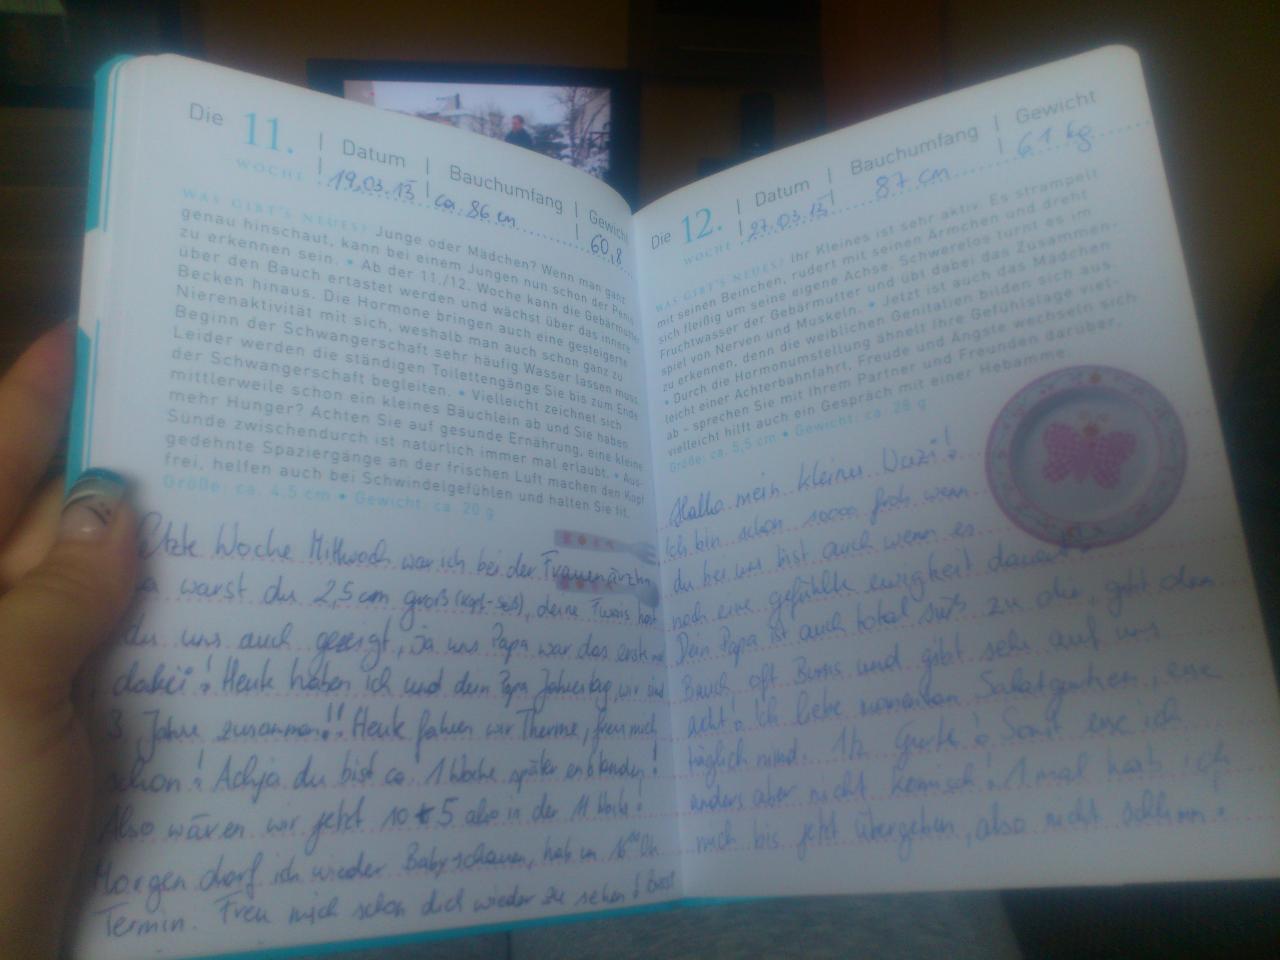 Die 11. | Datum | Bauchumfang | Gewicht
WOCHE | 19.03.13 | ca. 86 cm | 60,8
WAS GIBT'S NEUES? Junge oder Mädchen? Wenn man ganz
genau hinschaut, kann bei einem Jungen nun schon der Penis
zu erkennen sein. • Ab der 11./12. Woche kann die Gebärmutter
über den Bauch ertastet werden und wächst über das innere
Becken hinaus. Die Hormone bringen auch eine gesteigerte
Nierenaktivität mit sich, weshalb man auch schon ganz zu
Beginn der Schwangerschaft sehr häufig Wasser lassen muss.
Leider werden die ständigen Toilettengänge Sie bis zum Ende
der Schwangerschaft begleiten. • Vielleicht zeichnet sich
mittlerweile schon ein kleines Bäuchlein ab und Sie haben
mehr Hunger? Achten Sie auf gesunde Ernährung, eine kleine
Sünde zwischendurch ist natürlich immer mal erlaubt. • Aus-
gedehnte Spaziergänge an der frischen Luft machen den Kopf
frei, helfen auch bei Schwindelgefühlen und halten Sie fit.
Größe: ca. 4,5 cm • Gewicht: ca. 20 g
Woche Mittwoch war ich bei der Frauenärztin
warst du 2,5 cm groß, deine
du uns auch gezeigt, ja uns Papa war das erste
dabei! Heute haben ich und dein Papa Jahrestag, wir sind
3 Jahre zusammen!! Heute fahren wir Therme, freu mich
schon! Achja du bist ca. 1 Woche später entstanden!
Also wären wir jetzt 10+5 also in der 11 Woche!
Morgen darf ich wieder Baby schauen, hab um
Termin. Freu mich schon dich wieder zu sehen!
Die 12. | Datum | Bauchumfang | Gewicht
WOCHE | 27.03.13 | 87 cm | 61 kg
WAS GIBT'S NEUES? Ihr Kleines ist sehr aktiv. Es strampelt
mit seinen Beinchen, rudert mit seinen Ärmchen und dreht
sich fleißig um seine eigene Achse. Schwerelos turnt es im
Fruchtwasser der Gebärmutter und übt dabei das Zusammen-
spiel von Nerven und Muskeln. • Jetzt ist auch das Mädchen
zu erkennen, denn die weiblichen Genitalien bilden sich aus.
• Durch die Hormonumstellung ähnelt Ihre Gefühlslage viel-
leicht einer Achterbahnfahrt, Freude und Ängste wechseln sich
ab – sprechen Sie mit Ihrem Partner und Freunden darüber,
vielleicht hilft auch ein Gespräch mit einer Hebamme.
Größe: ca. 5,5 cm • Gewicht: ca. 28 g
Hallo mein kleiner
Ich bin schon soooo froh wenn
du bei uns bist auch wenn es
noch eine gefühlte ewigkeit dauert
Dein Papa ist auch total süß zu dir, gibt dem
Bauch oft Bussis und gibt sehr auf uns
acht! Ich liebe momentan Salatgurken, esse
täglich mind. 1/2 Gurke! Sonst esse ich
anders aber nicht komisch! 1 mal hab ich
mich bis jetzt übergeben, also nicht schlimm!